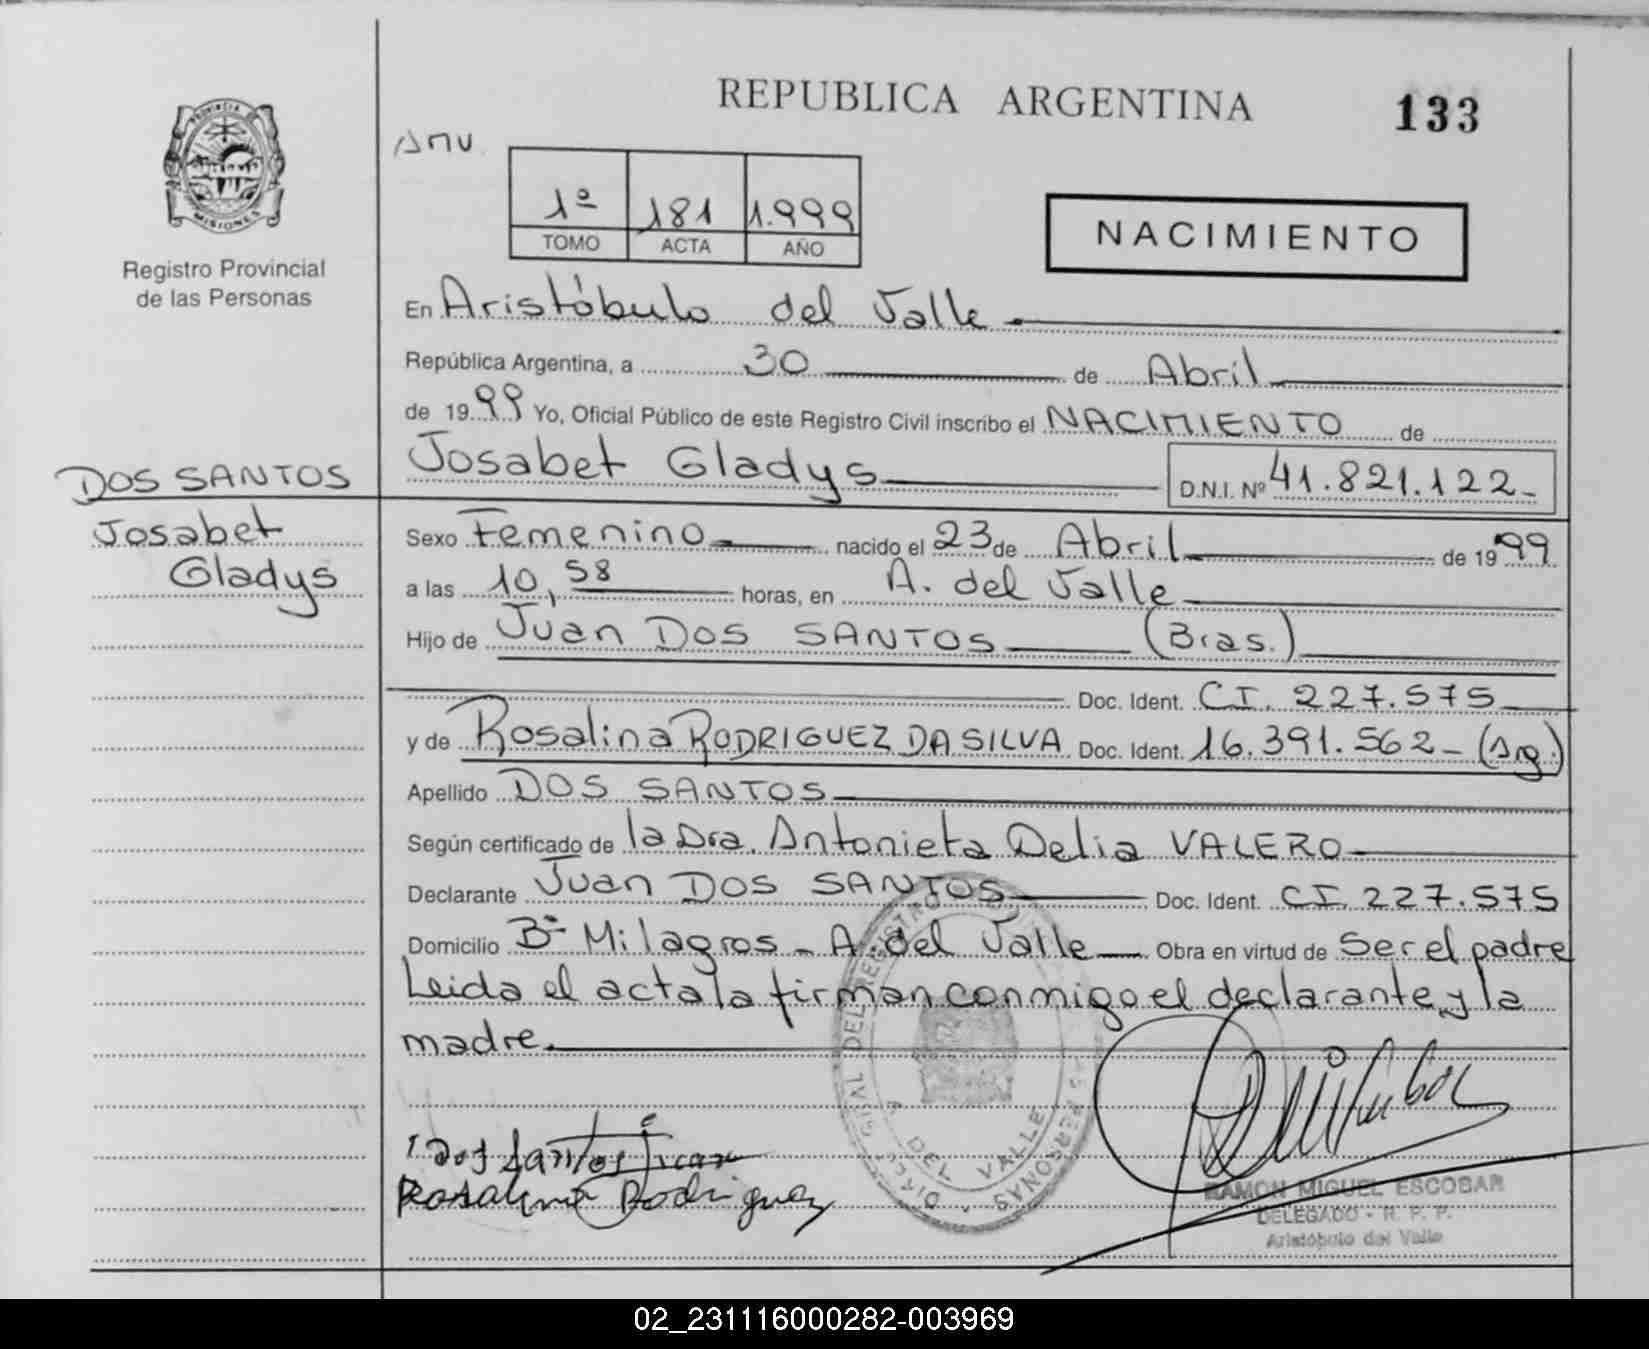 REPUBLICA ARGENTINA
133
PROVINCIA
MISIONES
Registro Provincial
de las Personas
1º 181 1.999
TOMO ACTA AÑO
NACIMIENTO
En Aristóbulo del Valle
República Argentina, a 30 de Abril
de 1999 Yo, Oficial Público de este Registro Civil inscribo el NACIMIENTO de
Josabet Gladys D.N.I. Nº 41.821.122
DOS SANTOS
Josabet
Gladys
Sexo Femenino nacido el 23 de Abril de 1999
a las 10,58 horas, en A. del Valle
Hijo de Juan DOS SANTOS (Bras.)
Doc. Ident. CI. 227.575
y de Rosalina RODRIGUEZ DA SILVA Doc. Ident. 16.391.562 - (Arg.)
Apellido DOS SANTOS
Según certificado de la Dra. Antonieta Delia VALERO
Declarante Juan DOS SANTOS Doc. Ident. CI. 227.575
Domicilio Bº Milagros - A. del Valle Obra en virtud de Ser el padre
Leida el acta la firman conmigo el declarante y la
madre.
Dos Santos Juan
Rosalina Rodriguez
A DEL VALLE
RAMON MIGUEL ESCOBAR
DELEGADO - R. P. P.
Aristóbulo del Valle
02_231116000282-003969